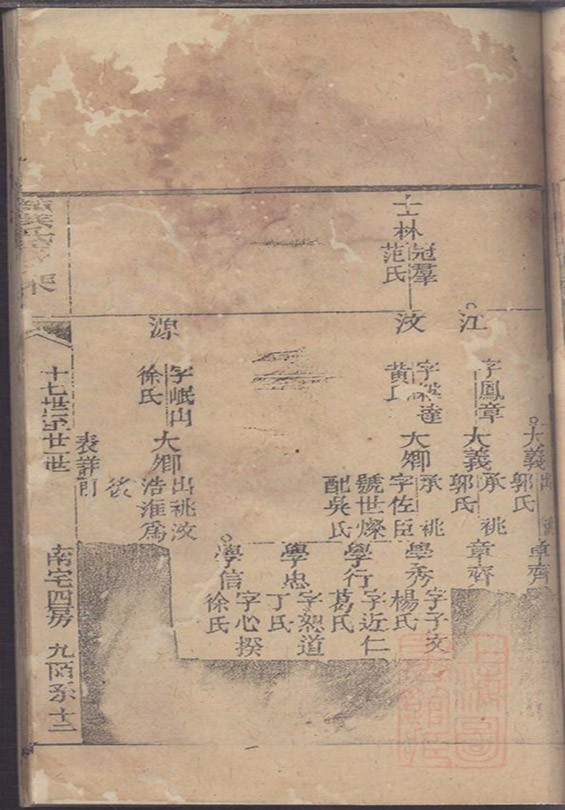 士林
冠羣
范氏
江
汶
源
大義
郭氏
章齊
字鳳章
大義
承祧
郭氏
章齊
黃氏
大卿
承祧
字佐臣
號世燦
配吳氏
學秀
字子文
楊氏
學行
字近仁
葛氏
學忠
字恕道
丁氏
學信
字心揆
徐氏
字岷山
徐氏
大卿
出祧汶
浩淮為
表詳前
十七世至廿一世
南宅四房
九
十二